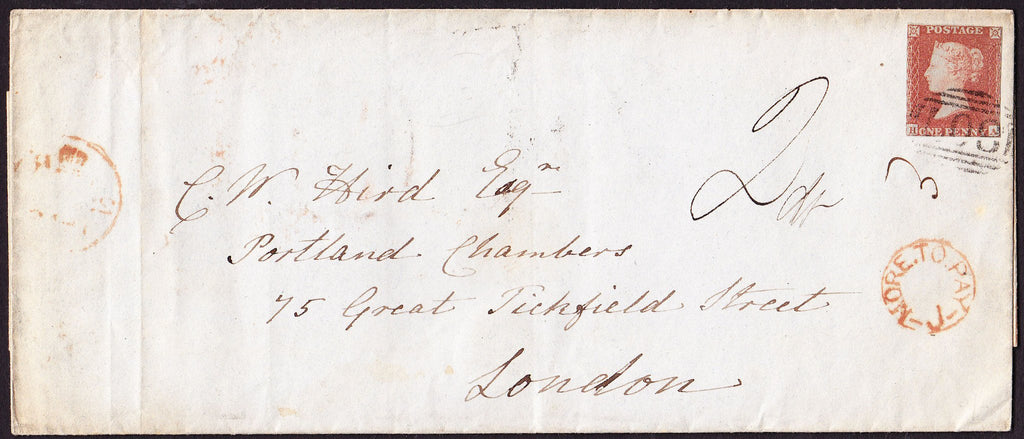 POSTAGE
ONE PENNY
H A
2
3
C. W. Hird Esqre
Portland Chambers
75 Great Tichfield Street
London
MORE.TO.PAY
J